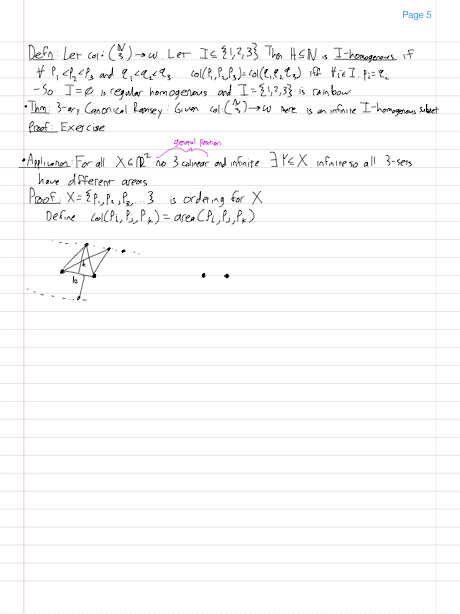 Page 5
Defn: Let col: (N 3) → ω. Let I ⊆ {1,2,3}. Then H ⊆ N is I-homogenous if
∀ p₁<p₂<p₃ and q₁<q₂<q₃ col(p₁,p₂,p₃)=col(q₁,q₂,q₃) iff ∀i∈I, pᵢ=qᵢ
- So I=∅ is regular homogenous and I={1,2,3} is rainbow
• Thm: 3-ary Canonical Ramsey: Given col:(N 3) → ω there is an infinite I-homogenous subset
Proof: Exercise
general position
• Application: For all X⊆R² no 3 colinear and infinite ∃ Y⊆X infinite so all 3-sets
have different areas
Proof: X = {p₁, p₂, p₃, ...} is ordering for X
Define col(pᵢ, pⱼ, pₖ) = area(pᵢ, pⱼ, pₖ)
h
b